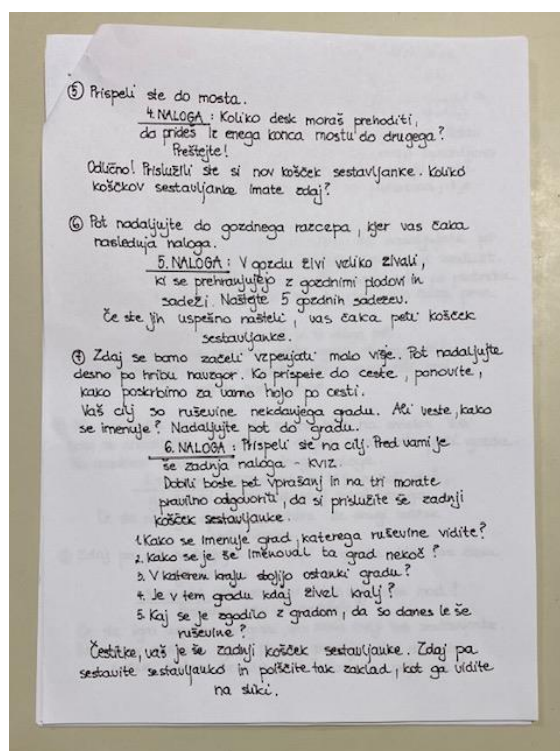 ⑤ Prispeli ste do mosta.
4. NALOGA : Koliko desk moraš prehoditi,
da prideš iz enega konca mostu do drugega?
Preštejte!
Odlično! Prislužili ste si nov košček sestavljanke. Koliko
koščkov sestavljanke imate zdaj?
⑥ Pot nadaljujte do gozdnega razcepa, kjer vas čaka
naslednja naloga.
5. NALOGA : V gozdu živi veliko živali,
ki se prehranjujejo z gozdnimi plodovi in
sadeži. Naštejte 5 gozdnih sadežev.
Če ste jih uspešno našteli, vas čaka peti košček
sestavljanke.
⑦ Zdaj se bomo začeli vzpenjati malo višje. Pot nadaljujte
desno po hribu navzgor. Ko prispete do ceste, ponovite,
kako poskrbimo za varno hojo po cesti.
Vaš cilj so ruševine nekdanjega gradu. Ali veste, kako
se imenuje? Nadaljujte pot do gradu.
6. NALOGA : Prispeli ste na cilj. Pred vami je
še zadnja naloga - KVIZ.
Dobili boste pet vprašanj in na tri morate
pravilno odgovoriti, da si prislužite še zadnji
košček sestavljanke.
1. Kako se imenuje grad, katerega ruševine vidite?
2. Kako se je še imenoval ta grad nekoč?
3. V katerem kraju stojijo ostanki gradu?
4. Je v tem gradu kdaj živel kralj?
5. Kaj se je zgodilo z gradom, da so danes le še
ruševine?
Čestitke, vaš je še zadnji košček sestavljanke. Zdaj pa
sestavite sestavljanko in poiščite tak zaklad, kot ga vidite
na sliki.